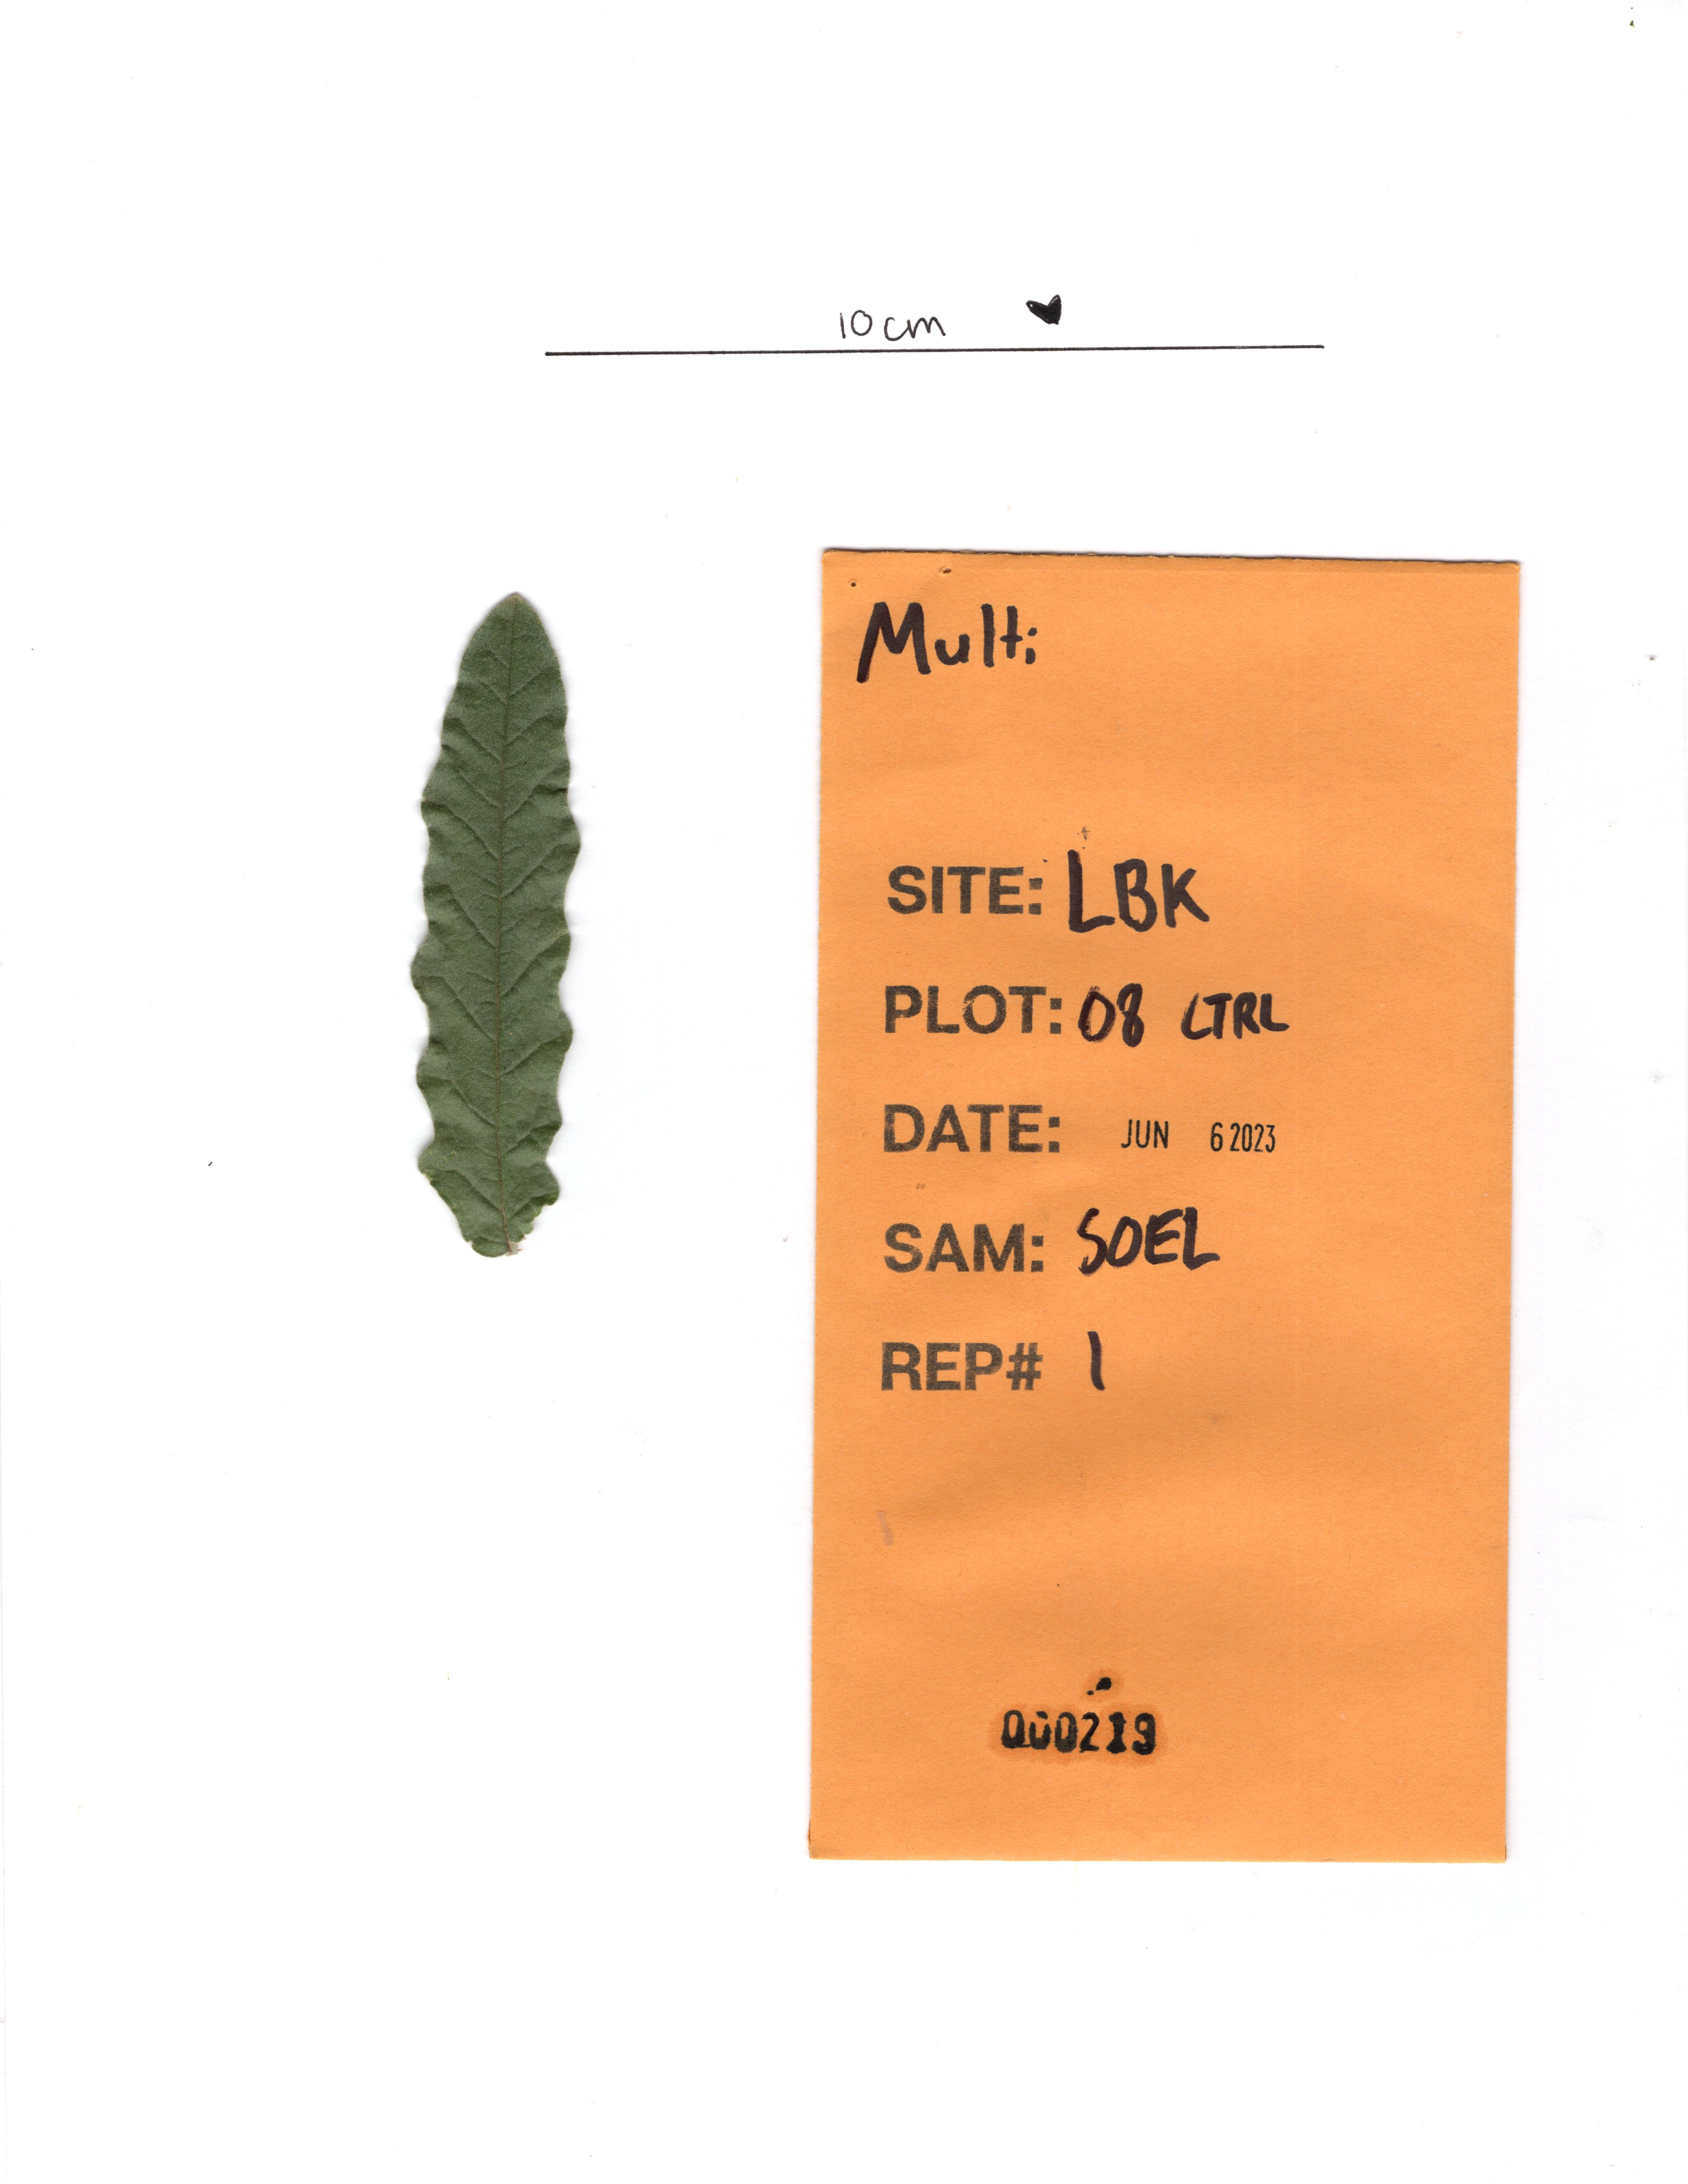 10 cm
Multi
SITE: LBK
PLOT: 08 CTRL
DATE: JUN 6 2023
SAM: SOEL
REP# 1
000219